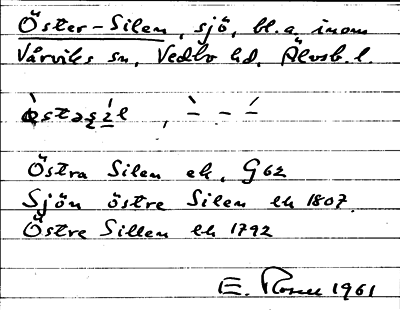 Öster-Silen, sjö, bl.a. inom
Vårviks sn, Vedbo hd, Älvsb. l.
Östra Silen ek, G62
Sjön östre Silen ek 1807.
Östre Sillen ek 1792
E. 1961